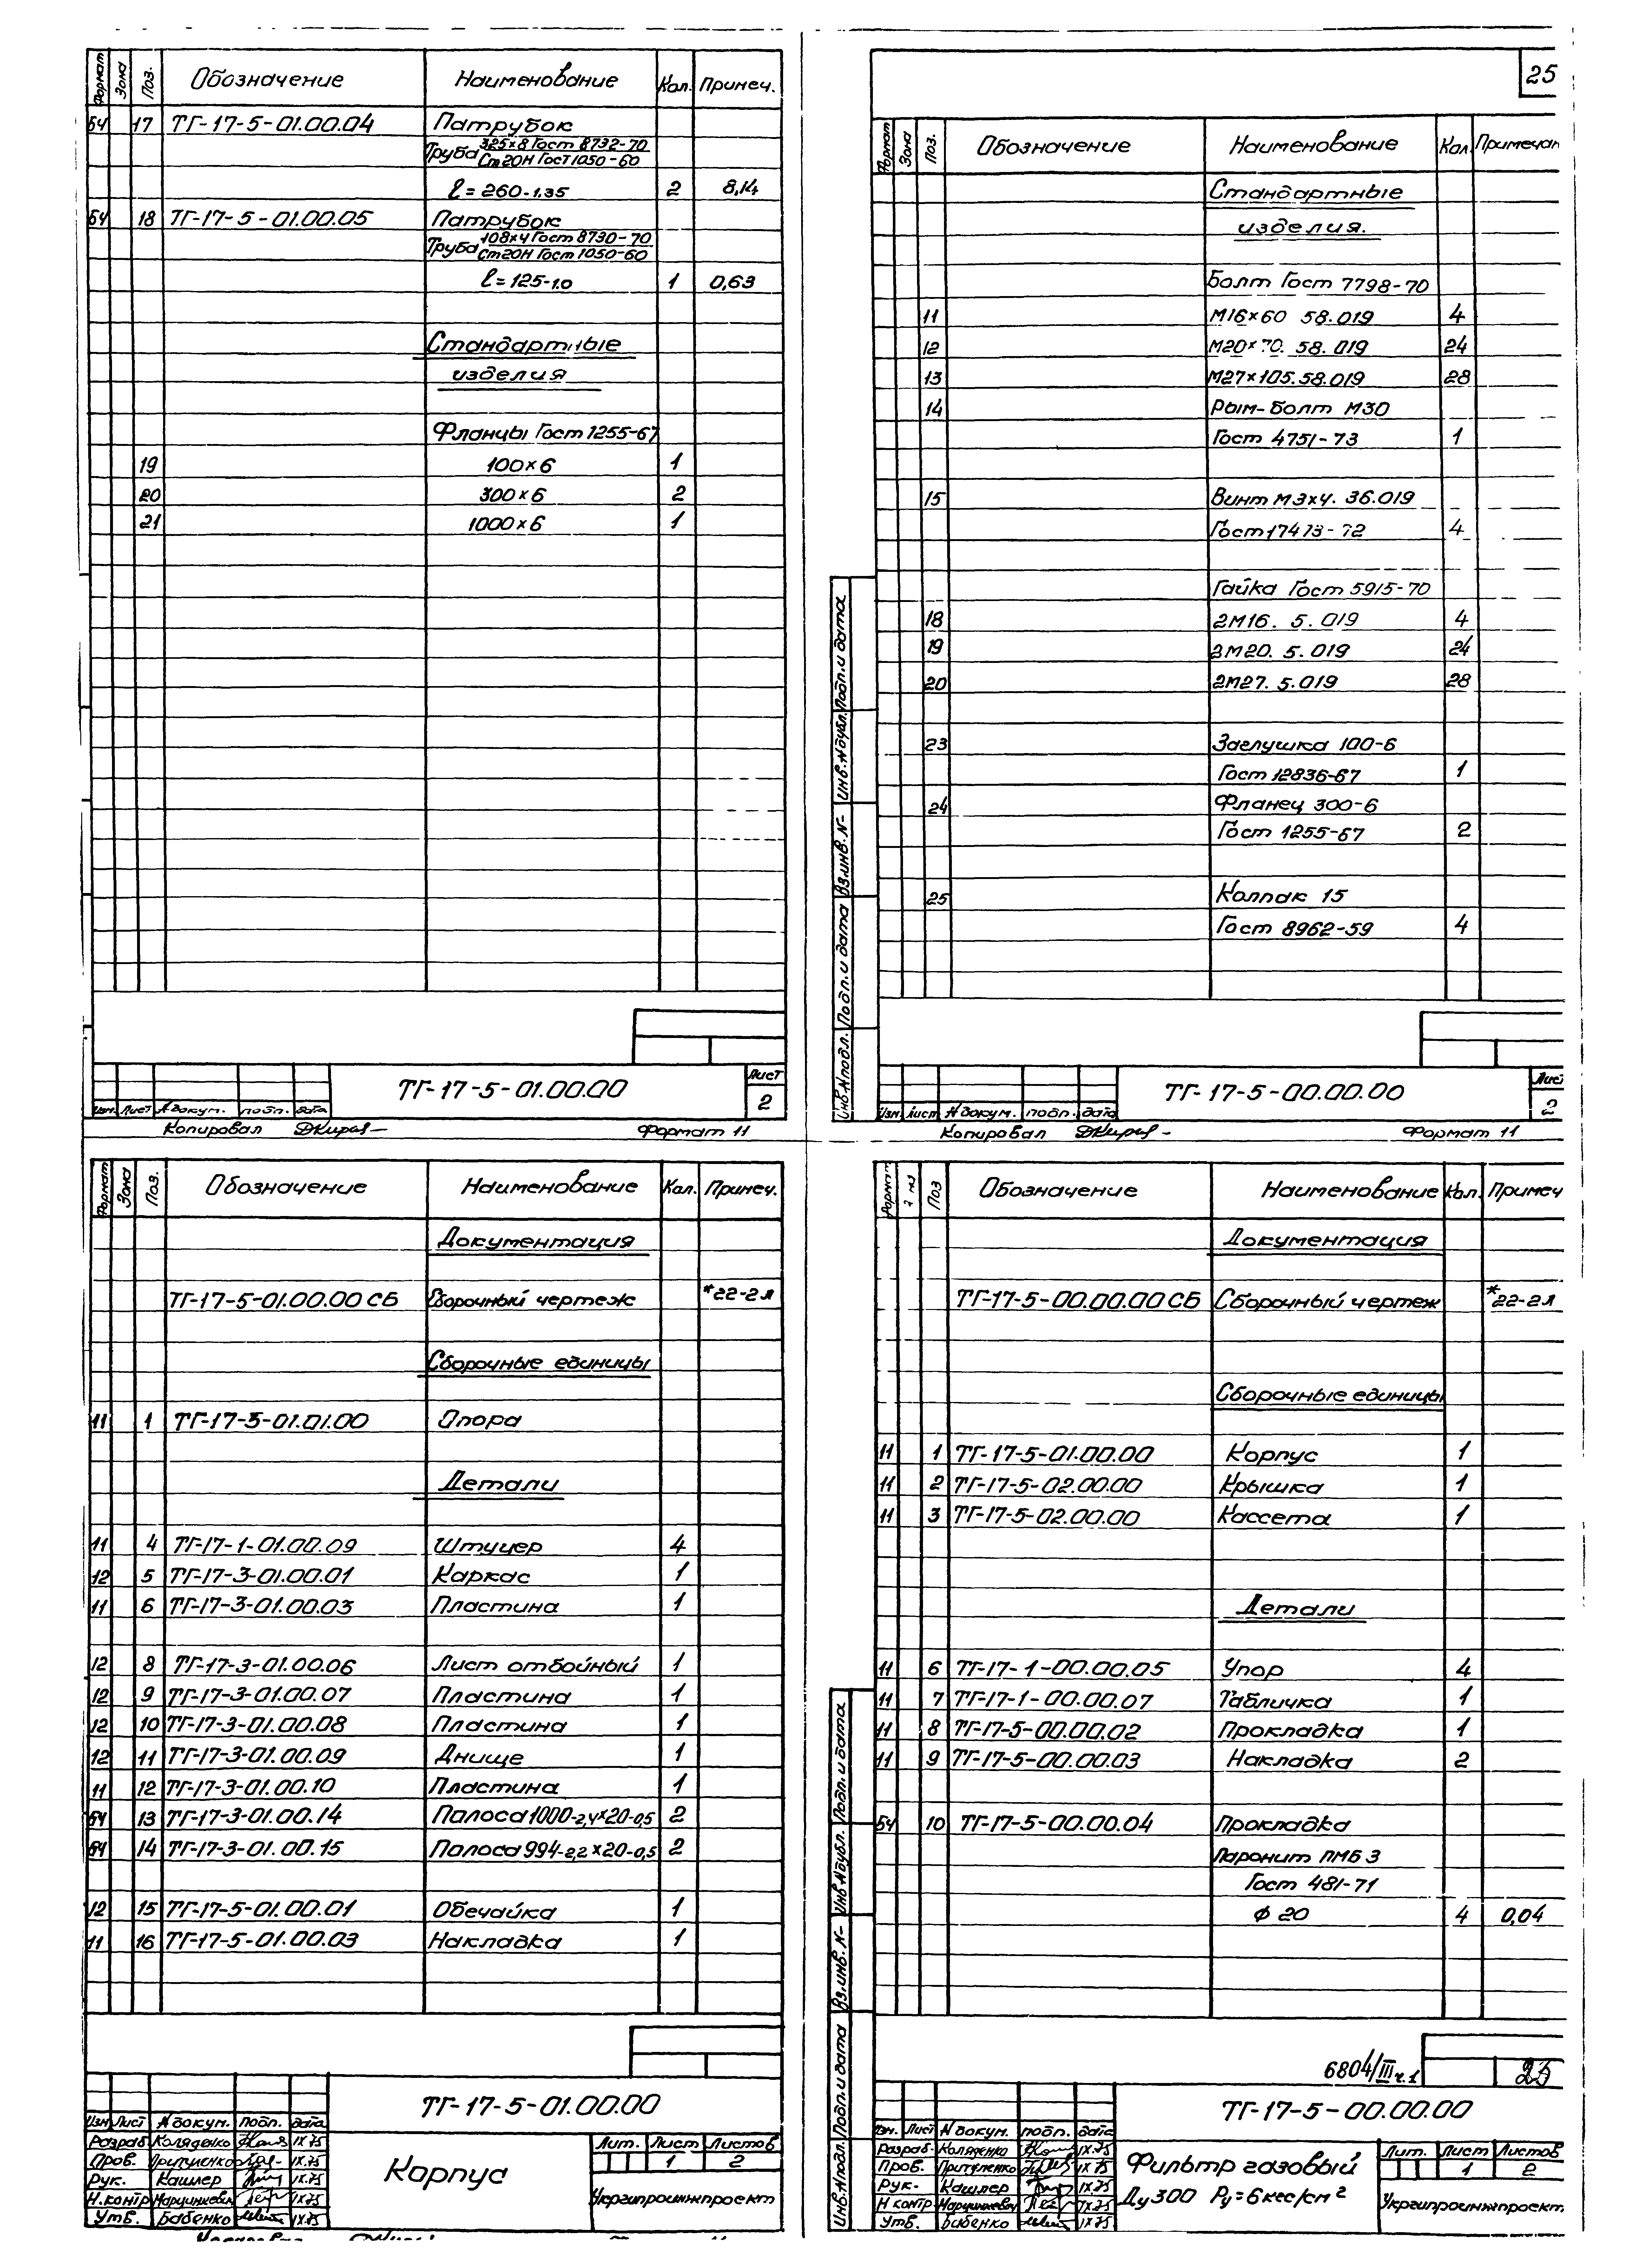 Формат Зона Поз. Обозначение Наименование Кол. Примеч.
БЧ 17 ТГ-17-5-01.00.04 Патрубок
Труба 325×8 Гост 8732-70
Ст20Н Гост 1050-60
ℓ=260-1.35 2 8,14
БЧ 18 ТГ-17-5-01.00.05 Патрубок
Труба 108×4 Гост 8730-70
Ст20Н Гост 1050-60
ℓ=125-1.0 1 0,63
Стандартные
изделия
Фланцы Гост 1255-67
19 100×6 1
20 300×6 2
21 1000×6 1
ТГ-17-5-01.00.00
Лист
2
Изм. Лист № докум. подп. дата
Копировал Формат 11
25
Формат Зона Поз. Обозначение Наименование Кол Примечан
Стандартные
изделия.
Болт Гост 7798-70
11 М16×60 58.019 4
12 М20×70. 58. 019 24
13 М27×105.58.019 28
14 Рым-болт М30
Гост 4751-73 1
15 Винт М3×4. 36.019
Гост 17473-72 4
Гайка Гост 5915-70
18 2М16. 5. 019 4
19 2М20. 5. 019 24
20 2М27. 5.019 28
23 Заглушка 100-6
Гост 12836-67 1
24 Фланец 300-6
Гост 1255-67 2
25 Колпак 15
Гост 8962-59 4
Инв.№подл. Подп.и дата Вз.инв.№ Инв.№дубл. Подп.и дата
ТГ-17-5-00.00.00
Лис
2
Изм. Лист № докум. подп. дата
Копировал Формат 11
Формат Зона Поз. Обозначение Наименование Кол. Примеч.
Документация
ТГ-17-5-01.00.00 СБ Сборочный чертеж *22-2л
Сборочные единицы
11 1 ТГ-17-5-01.01.00 Опора
Детали
11 4 ТГ-17-1-01.00.09 Штуцер 4
12 5 ТГ-17-3-01.00.01 Каркас 1
11 6 ТГ-17-3-01.00.03 Пластина 1
12 8 ТГ-17-3-01.00.06 Лист отбойный 1
12 9 ТГ-17-3-01.00.07 Пластина 1
12 10 ТГ-17-3-01.00.08 Пластина 1
12 11 ТГ-17-3-01.00.09 Днище 1
11 12 ТГ-17-3-01.00.10 Пластина 1
БЧ 13 ТГ-17-3-01.00.14 Полоса 1000-2,4×20-0,5 2
БЧ 14 ТГ-17-3-01.00.15 Полоса 994-2,2×20-0,5 2
12 15 ТГ-17-5-01.00.01 Обечайка 1
11 16 ТГ-17-5-01.00.03 Накладка 1
ТГ-17-5-01.00.00
Изм Лист № докум. подп. дата
Разраб. Коляденко IX.75
Пров. Притуленко IX.75
Рук. Кашлер IX.75
Н.контр IX.75
Утв. Бабенко IX.75
Корпус
Лит. Лист Листов
1 2
Укргипроинжпроект
Формат Поз Обозначение Наименование Кол. Примеч
Документация
ТГ-17-5-00.00.00 СБ Сборочный чертеж *22-2л
Сборочные единицы
11 1 ТГ-17-5-01.00.00 Корпус 1
11 2 ТГ-17-5-02.00.00 Крышка 1
11 3 ТГ-17-5-02.00.00 Кассета 1
Детали
11 6 ТГ-17-1-00.00.05 Упор 4
11 7 ТГ-17-1-00.00.07 Табличка 1
11 8 ТГ-17-5-00.00.02 Прокладка 1
11 9 ТГ-17-5-00.00.03 Накладка 2
БЧ 10 ТГ-17-5-00.00.04 Прокладка
Паронит ПМБ 3
Гост 481-71
Ф 20 4 0,04
Инв.№подл. Подп.и дата Вз.инв.№ Инв.№дубл. Подп.и дата
6804/III ч.1
ТГ-17-5-00.00.00
Изм. Лист № докум. подп. дата
Разраб. Коляденко IX.75
Пров. Притуленко IX.75
Рук. Кашлер IX.75
Н контр IX.75
Утв. Бабенко IX.75
Фильтр газовый
Ду 300 Ру=6кгс/см²
Лит. Лист Листов
1 2
Укргипроинжпроект.